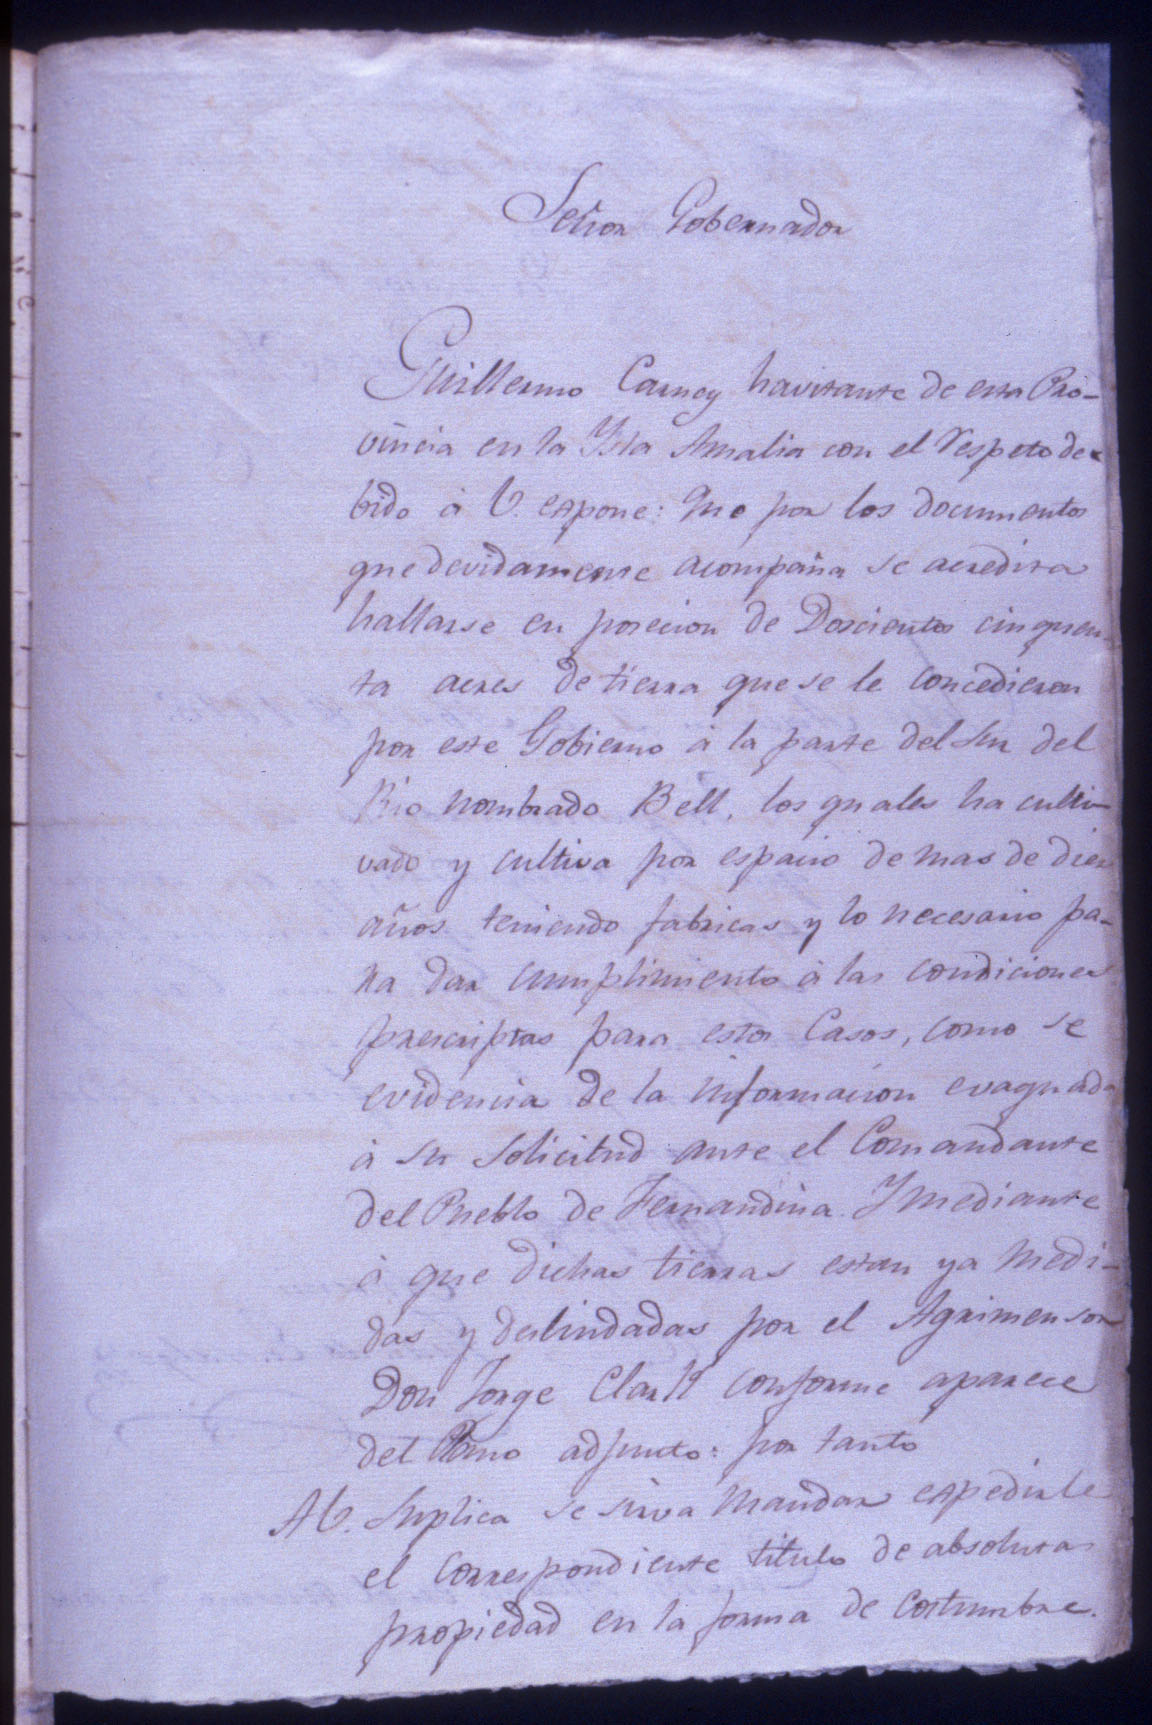 Señor Gobernador
Guillermo Carney havitante de esta Pro-
vincia en la Ysla Amalia con el respeto de-
bido à V. espone: Que por los documentos
que devidamente acompaña se acredita
hallarse en posecion de Doscientos cinquen-
ta acres de tierra que se le concedieron
por este Gobierno à la parte del Sur del
Rio nombrado Bell, los quales ha culti-
vado y cultiva por espacio de mas de diez
años teniendo fabricas y lo necesario pa-
ra dar cumplimiento à las condiciones
prescriptas para estos Casos, como se
evidencia de la informacion evaquada
à su solicitud ante el Comandante
del Pueblo de Fernandina. Y mediante
à que dichas tierras estan ya medi-
das y deslindadas por el Agrimensor
Don Jorge Clark conforme aparece
del Plano adjunto: por tanto
A V. Suplica se sirva mandar espedirle
el correspondiente titulo de absoluta
propiedad en la forma de costumbre.